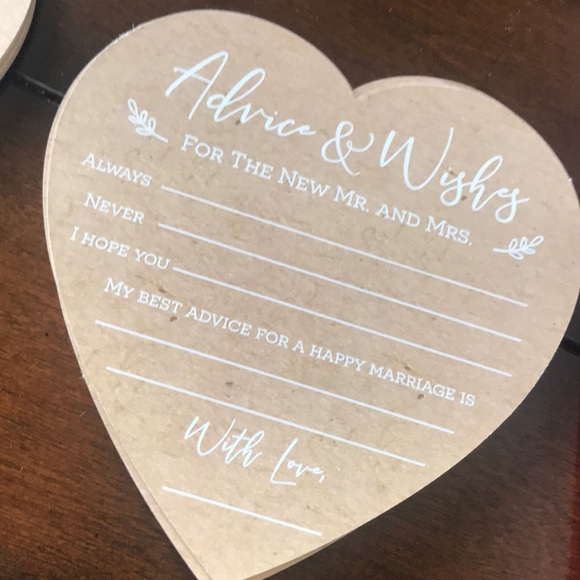 Advice & Wishes
FOR THE NEW MR. AND MRS.
ALWAYS
NEVER
I HOPE YOU
MY BEST ADVICE FOR A HAPPY MARRIAGE IS
With Love,